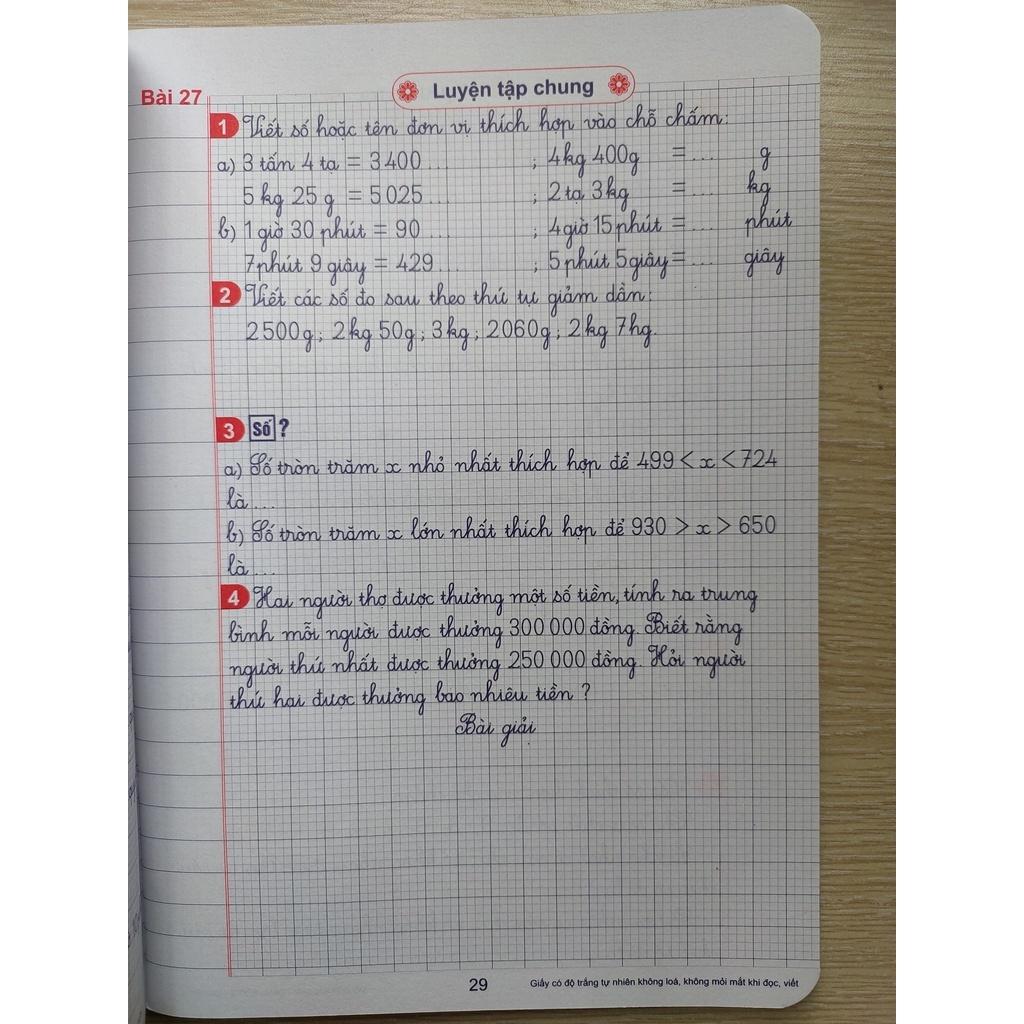 Bài 27
Luyện tập chung
1 Viết số hoặc tên đơn vị thích hợp vào chỗ chấm:
a) 3 tấn 4 tạ = 3400 ... ; 4kg 400g = ... g
5 kg 25 g = 5025 ... ; 2 tạ 3kg = ... kg
b) 1 giờ 30 phút = 90 ... ; 4 giờ 15 phút = ... phút
7 phút 9 giây = 429 ... ; 5 phút 5 giây = ... giây
2 Viết các số đo sau theo thứ tự giảm dần:
2500g; 2kg 50g; 3kg; 2060g; 2kg 7hg.
3 Số ?
a) Số tròn trăm x nhỏ nhất thích hợp để 499 < x < 724
là ...
b) Số tròn trăm x lớn nhất thích hợp để 930 > x > 650
là ...
4 Hai người thợ được thưởng một số tiền, tính ra trung
bình mỗi người được thưởng 300 000 đồng. Biết rằng
người thứ nhất được thưởng 250 000 đồng. Hỏi người
thứ hai được thưởng bao nhiêu tiền ?
Bài giải
29
Giấy có độ trắng tự nhiên không loá, không mỏi mắt khi đọc, viết